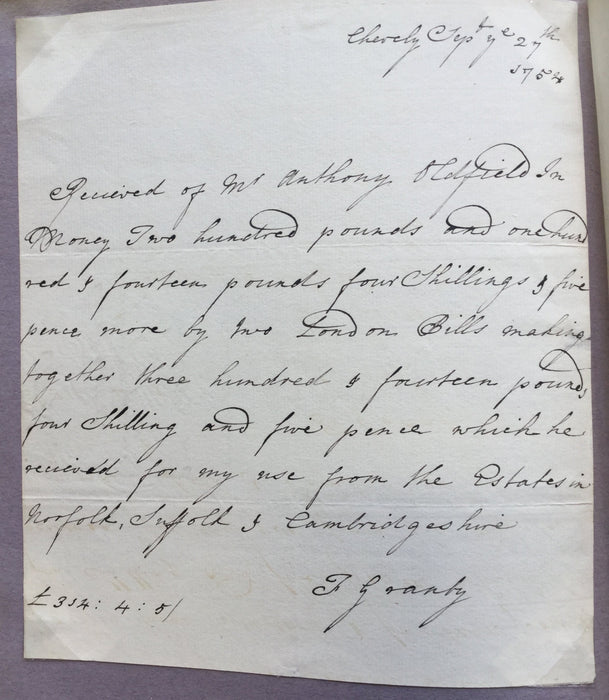 Cheverly Sepr ye 27th
1754
Recieved of Mr Anthony Oldfield In
Money Two hundred pounds and one hund
red & fourteen pounds four Shillings & five
pence more by two London Bills making
together three hundred & fourteen pounds
four Shilling and five pence which he
recieved for my use from the Estates in
Norfolk, Suffolk & Cambridgeshire
F Granby
£ 314: 4: 5/